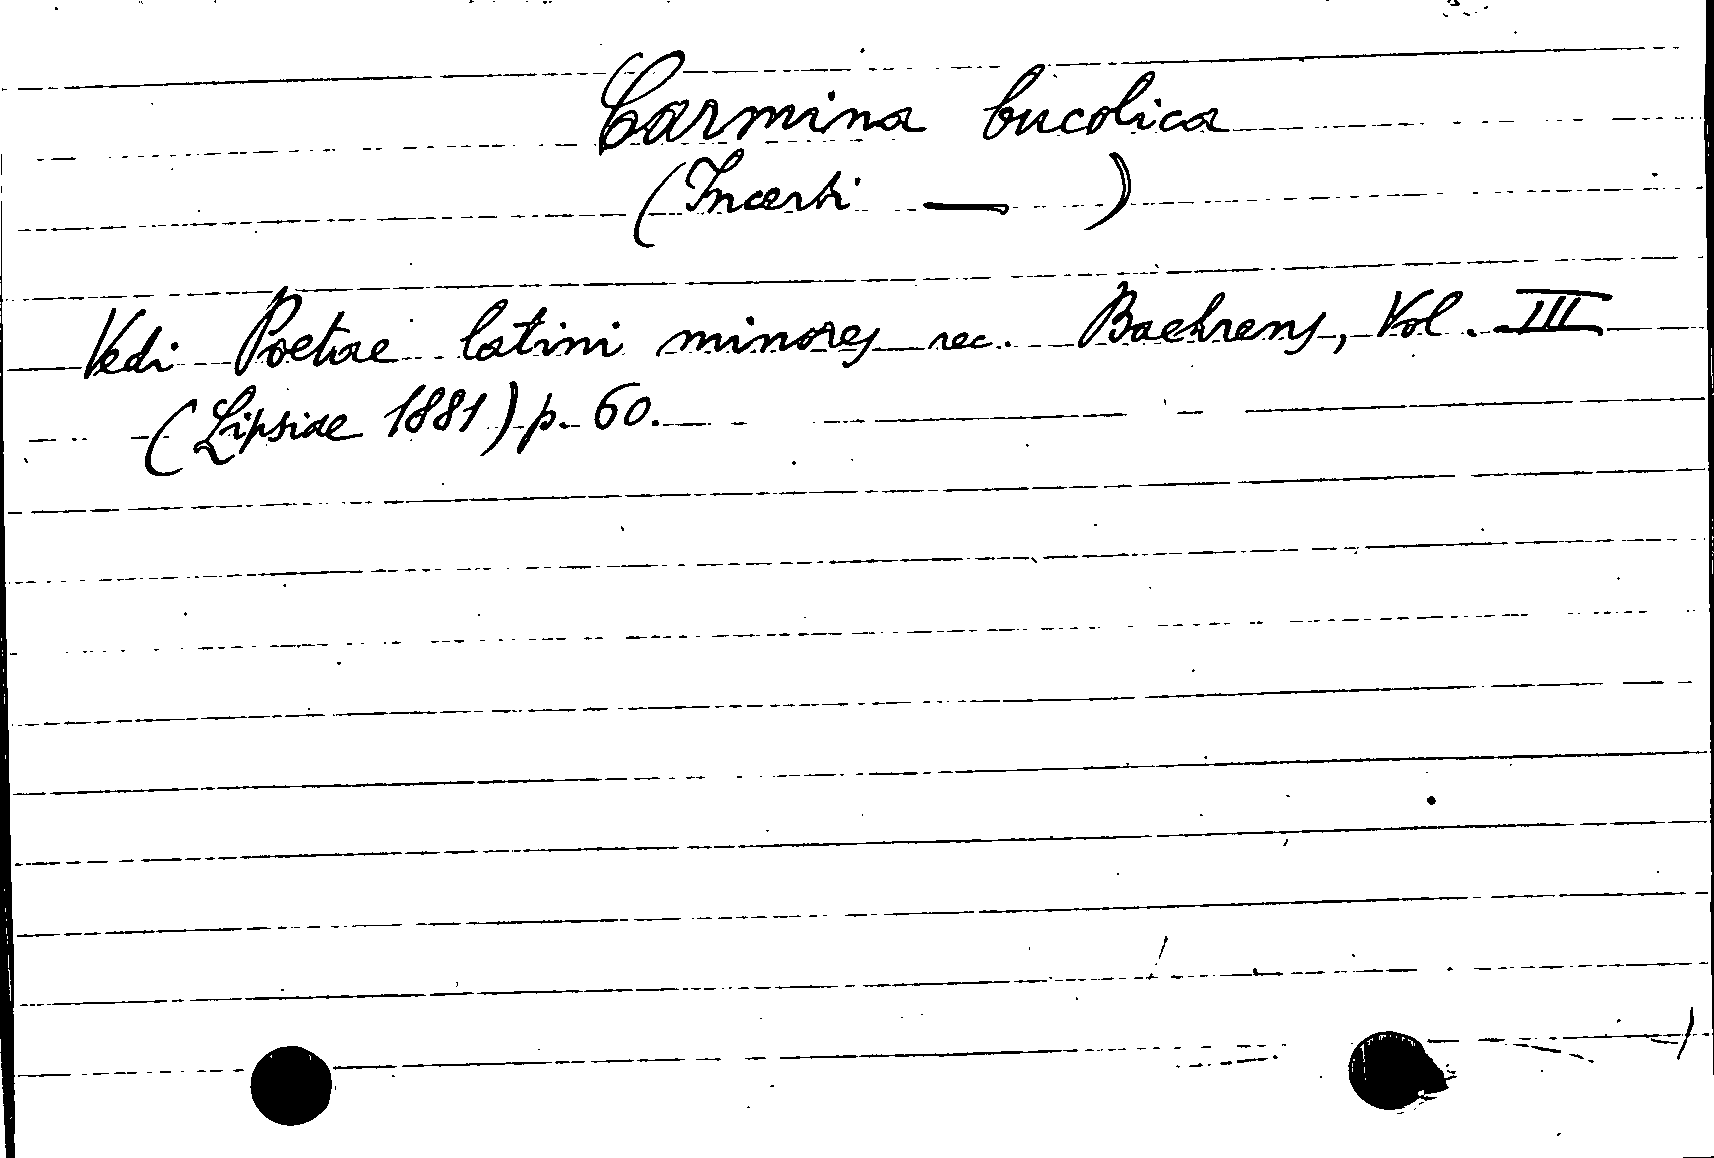 Carmina bucolica
(Incerti — )
Vedi Poetae latini minores rec. Baehrens, Vol. III
(Lipsiae 1881) p. 60.